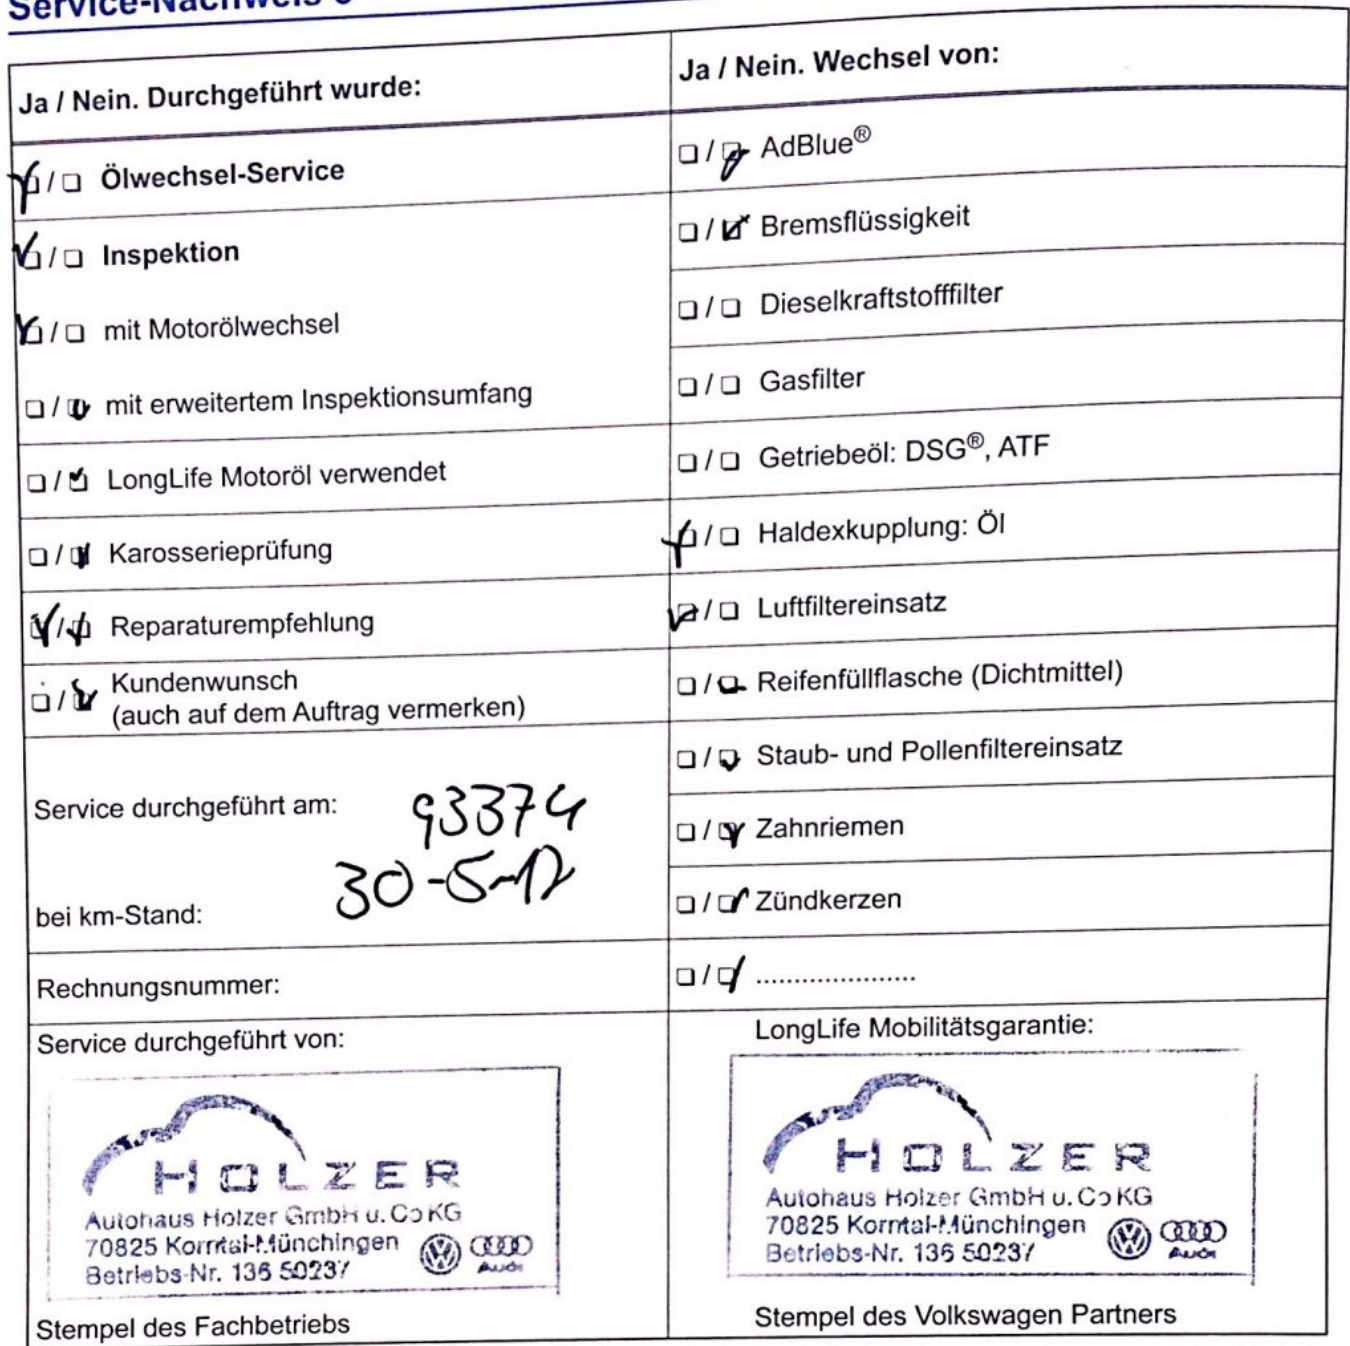 Service-Nachweis
Ja / Nein. Durchgeführt wurde:
/ Ölwechsel-Service
/ Inspektion
/ mit Motorölwechsel
/ mit erweitertem Inspektionsumfang
/ LongLife Motoröl verwendet
/ Karosserieprüfung
/ Reparaturempfehlung
/ Kundenwunsch
(auch auf dem Auftrag vermerken)
Service durchgeführt am:
93374
30-5-17
bei km-Stand:
Rechnungsnummer:
Service durchgeführt von:
HOLZER
Autohaus Holzer GmbH u. Co KG
70825 Korntal-Münchingen
Betriebs-Nr. 136 50237
Audi
Stempel des Fachbetriebs
Ja / Nein. Wechsel von:
/ AdBlue®
/ Bremsflüssigkeit
/ Dieselkraftstofffilter
/ Gasfilter
/ Getriebeöl: DSG®, ATF
/ Haldexkupplung: Öl
/ Luftfiltereinsatz
/ Reifenfüllflasche (Dichtmittel)
/ Staub- und Pollenfiltereinsatz
/ Zahnriemen
/ Zündkerzen
/ .....................
LongLife Mobilitätsgarantie:
HOLZER
Autohaus Holzer GmbH u. Co KG
70825 Korntal-Münchingen
Betriebs-Nr. 136 50237
Audi
Stempel des Volkswagen Partners